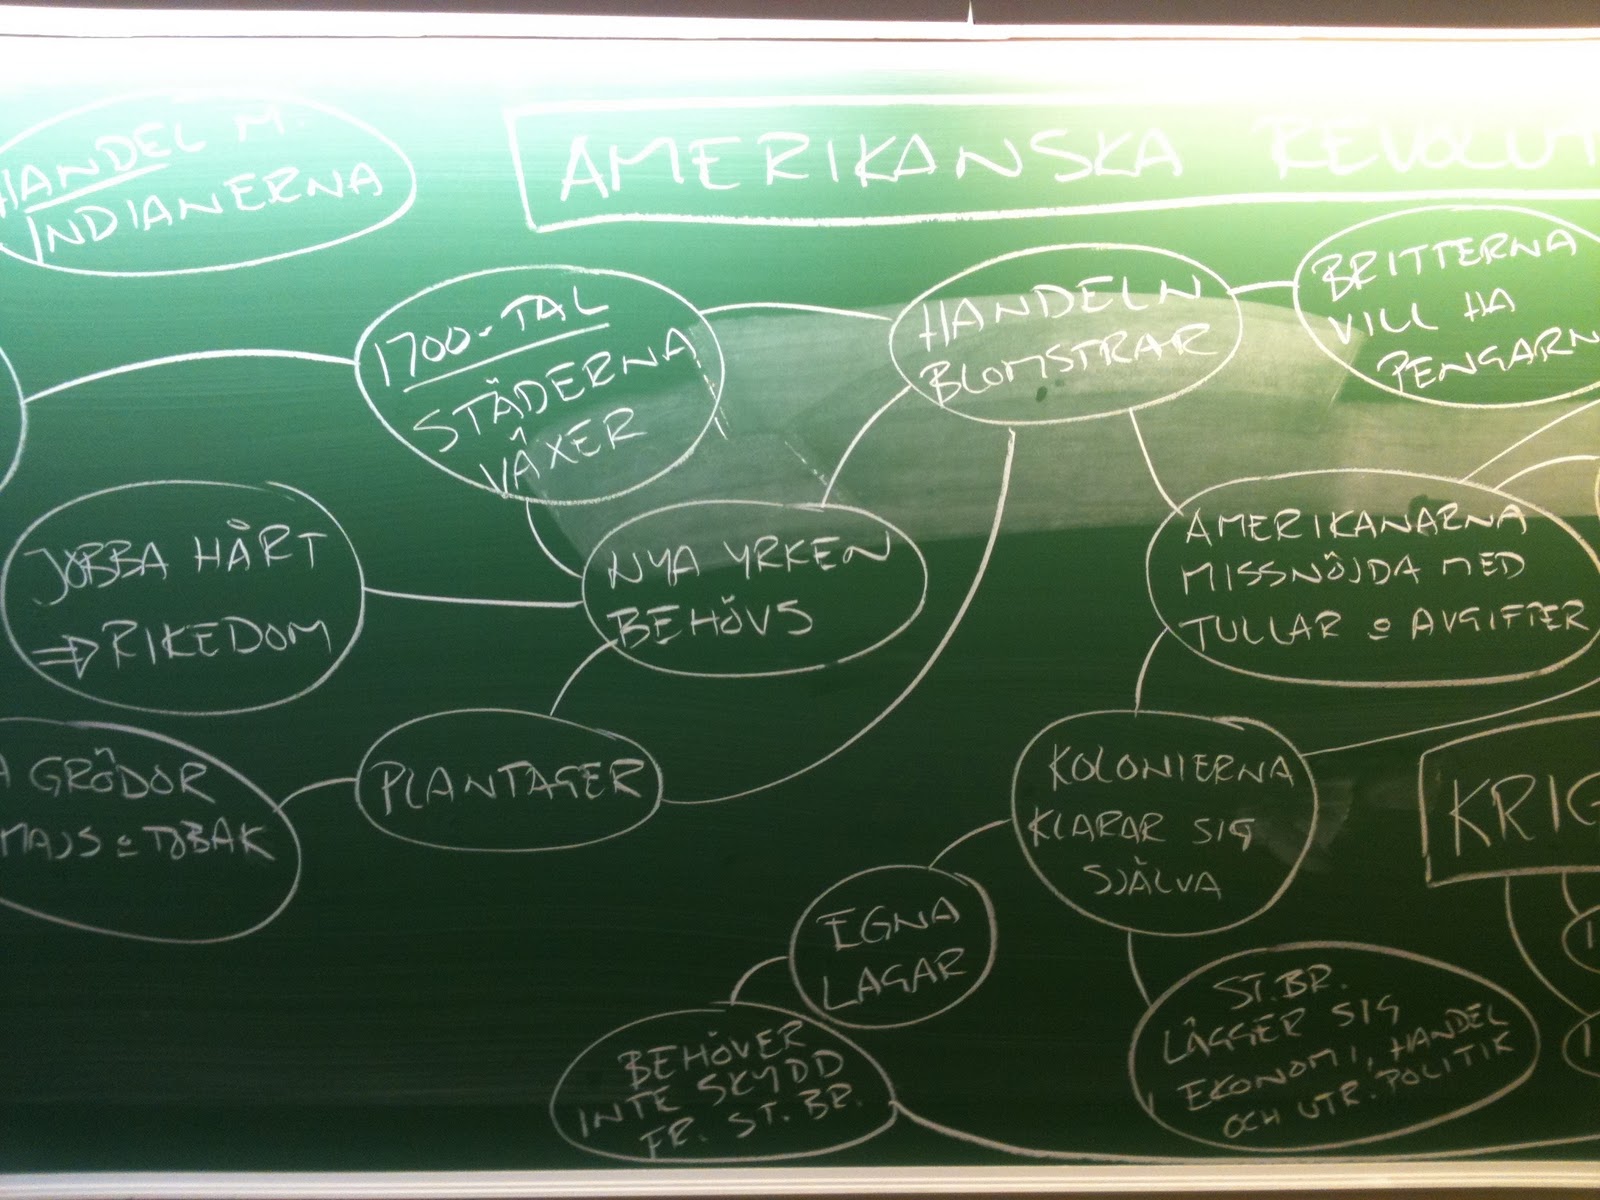 AMERIKANSKA REVOLUT
HANDEL M.
INDIANERNA
1700-TAL
STÄDERNA
VÄXER
HANDELN
BLOMSTRAR
BRITTERNA
VILL HA
PENGARN
JOBBA HÅRT
⇒ RIKEDOM
NYA YRKEN
BEHÖVS
AMERIKANARNA
MISSNÖJDA MED
TULLAR o AVGIFTER
A GRÖDOR
MAJS o TOBAK
PLANTAGER
KOLONIERNA
KLARAR SIG
SJÄLVA
KRIG
EGNA
LAGAR
BEHÖVER
INTE SKYDD
FR. ST. BR.
ST. BR.
LÄGGER SIG
EKONOMI, HANDEL
OCH UTR. POLITIK